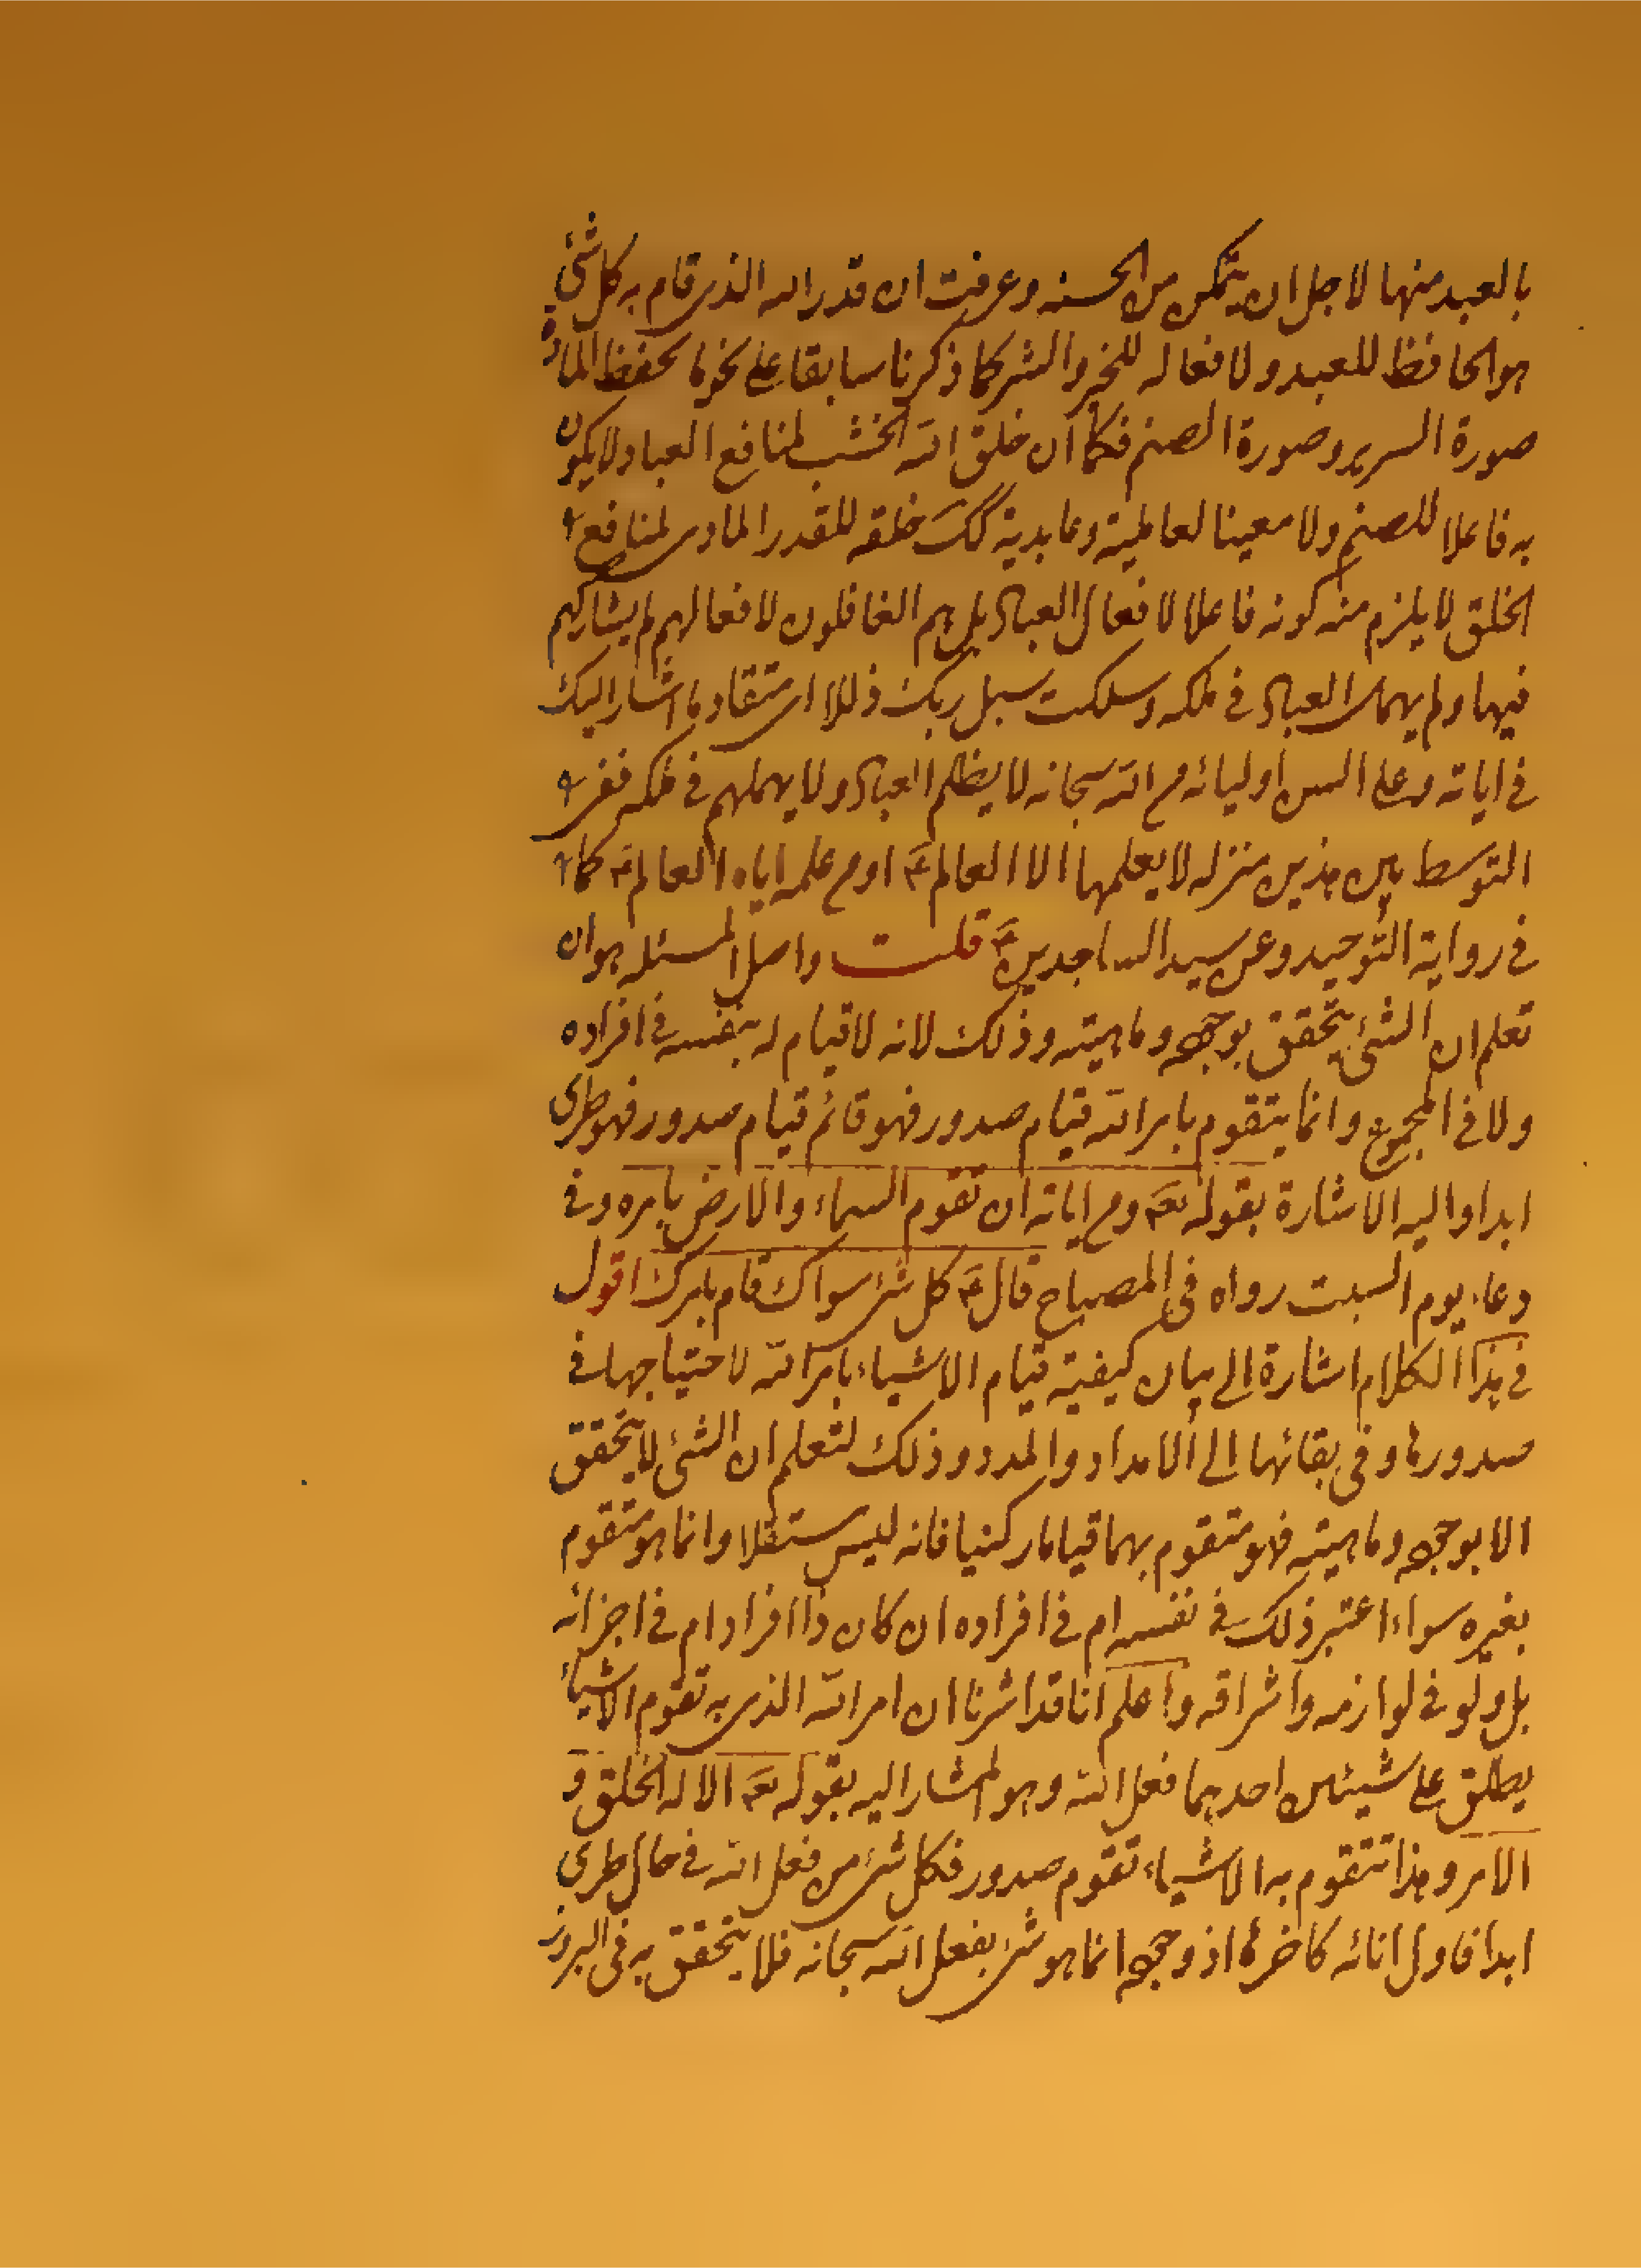 بالعبد منها لاجل ان يتمكن من الحسنه وعرفت ان قدر الله الذى قام به كل شئ
هو الحافظ للعبد ولافعاله للخير والشر كما ذكرنا سابقا على نحو ما يحفظ المادة
صورة السرير وصورة الصنم فكما ان خلق الله الخشب لمنافع العباد لا يكون
به فاعلا للصنم ولا معينا لعامليه وعابديه كك خلقه للقدر المادى لمنافع
الخلق لا يلزم منه كونه فاعلا لافعال العباد بل هم الفاعلون لافعالهم لم يشاركهم
فيها ولم يهمل العباد فى ملكه وسلكت سبل ربك ذللا اى منقادة لما اشار اليك
فى اياته وعلى السن اوليائه من الله سبحانه لا يظلم العباد ولا يهملهم فى ملكه ففى
التوسط بين هذين منزله لا يعلمها الا العالم ع او من علمه اياه العالم ع كما
فى رواية التوحيد وعن سيد الساجدين ع قلت واصل المسئله هو ان
تعلم ان الشئ يتحقق بوجوده وماهيته وذلك لانه لا قيام له بنفسه فى افراده
ولا فى المجموع وانما يتقوم بامر الله قيام صدور فهو قائم قيام صدور فهو طرى
ابدا واليه الاشارة بقوله تع ومن اياته ان تقوم السماء والارض بامره وفى
دعاء يوم السبت رواه فى المصباح قال ع كل شئ سواك قام بامرك اقول
فى هذا الكلام اشارة الى بيان كيفية قيام الاشياء بامر الله لاحتياجها فى
صدورها وفى بقائها الى الامداد والمدد وذلك لتعلم ان الشئ لا يتحقق
الا بوجوده وماهيته فهو متقوم بهما قياما ركنيا فانه ليس مستقلا وانما هو متقوم
بغيره سواء اعتبر ذلك فى نفسه ام فى افراده ان كان ذا افراد ام فى اجزائه
بل ولو فى لوازمه واشراقه واعلم انا قد اشرنا ان امر الله الذى به تقوم الاشياء
يطلق على شيئين احدهما فعل الله وهو المشار اليه بقوله تع الا له الخلق و
الامر وهذا تتقوم به الاشياء تقوم صدور فكل شئ من فعل الله فى حال طرى
ابدا فاول انائه كاخرها اذ وجوده انما هو شئ بفعل الله سبحانه فلا يتحقق به فى البروز